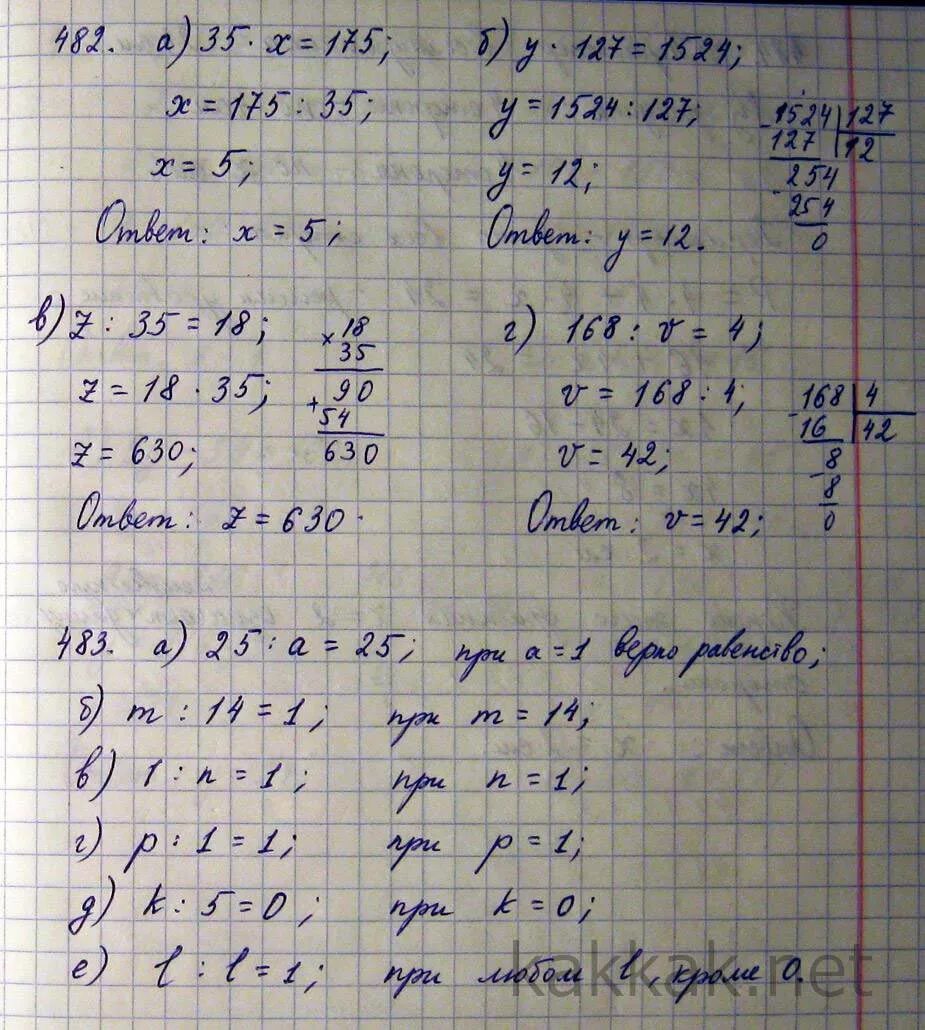 482. а) 35 · x = 175;
x = 175 : 35;
x = 5;
Ответ: x = 5;
б) y · 127 = 1524;
y = 1524 : 127;
y = 12;
Ответ: y = 12.
- 1524 | 127
127 | 12
- 254
254
0
в) z : 35 = 18;
z = 18 · 35;
z = 630;
Ответ: z = 630.
× 18
35
+ 90
54
630
г) 168 : v = 4;
v = 168 : 4;
v = 42;
Ответ: v = 42;
- 168 | 4
16 | 42
- 8
8
0
483. а) 25 : a = 25; при a = 1 верно равенство;
б) m : 14 = 1; при m = 14;
в) 1 : n = 1; при n = 1;
г) p : 1 = 1; при p = 1;
д) k : 5 = 0; при k = 0;
е) l : l = 1; при любом l, кроме 0.
kakkak.net